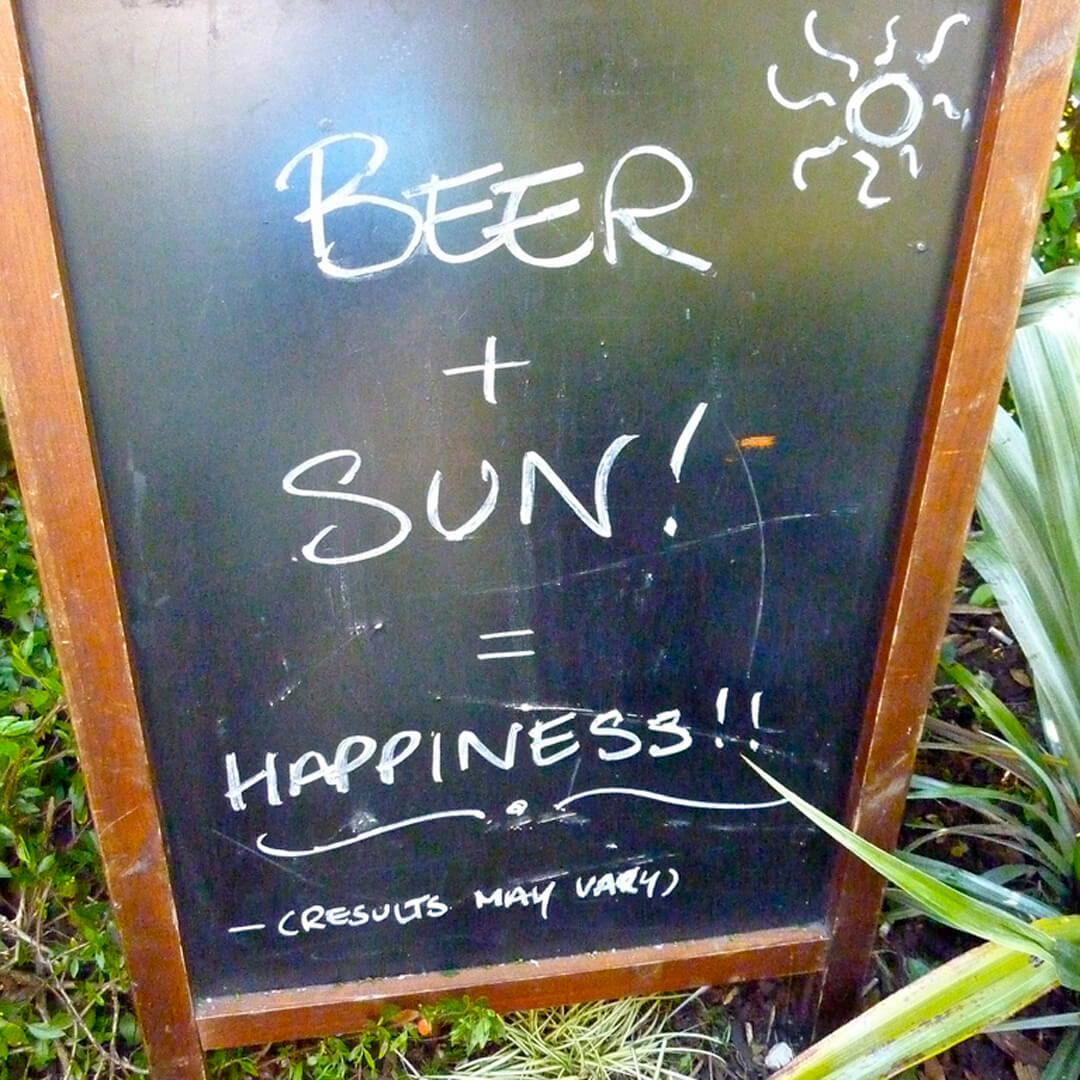 BEER
+
SUN!
=
HAPPINESS!!
- (RESULTS MAY VARY)